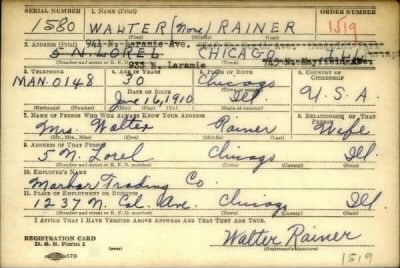 SERIAL NUMBER 1. NAME (Print) ORDER NUMBER
1580 WALTER (None) RAINER 1519
941 N. Laramie Ave.
2. ADDRESS (Print)
5 N. LOREL CHICAGO ILL
933 N. Laramie 745 N. Mayfield Ave.
3. TELEPHONE 4. AGE IN YEARS 5. PLACE OF BIRTH 6. COUNTRY OF CITIZENSHIP
MAN. 0148 30 Chicago
June 16, 1910 Ill U.S.A.
7. NAME OF PERSON WHO WILL ALWAYS KNOW YOUR ADDRESS 8. RELATIONSHIP OF THAT PERSON
Mrs. Walter Rainer Wife
(Mr., Mrs., Miss) (First) (Middle) (Last)
9. ADDRESS OF THAT PERSON
5 N. Lorel Chicago Ill.
(Number and street or R. F. D. number) (Town) (County) (State)
10. EMPLOYER'S NAME
Markar Trading Co.
11. PLACE OF EMPLOYMENT OR BUSINESS
1237 N. Cal. Ave. Chicago Ill.
(Number and street or R. F. D. number) (Town) (County) (State)
I AFFIRM THAT I HAVE VERIFIED ABOVE ANSWERS AND THAT THEY ARE TRUE.
REGISTRATION CARD
D. S. S. Form 1 Walter Rainer
(Registrant's signature)
1519